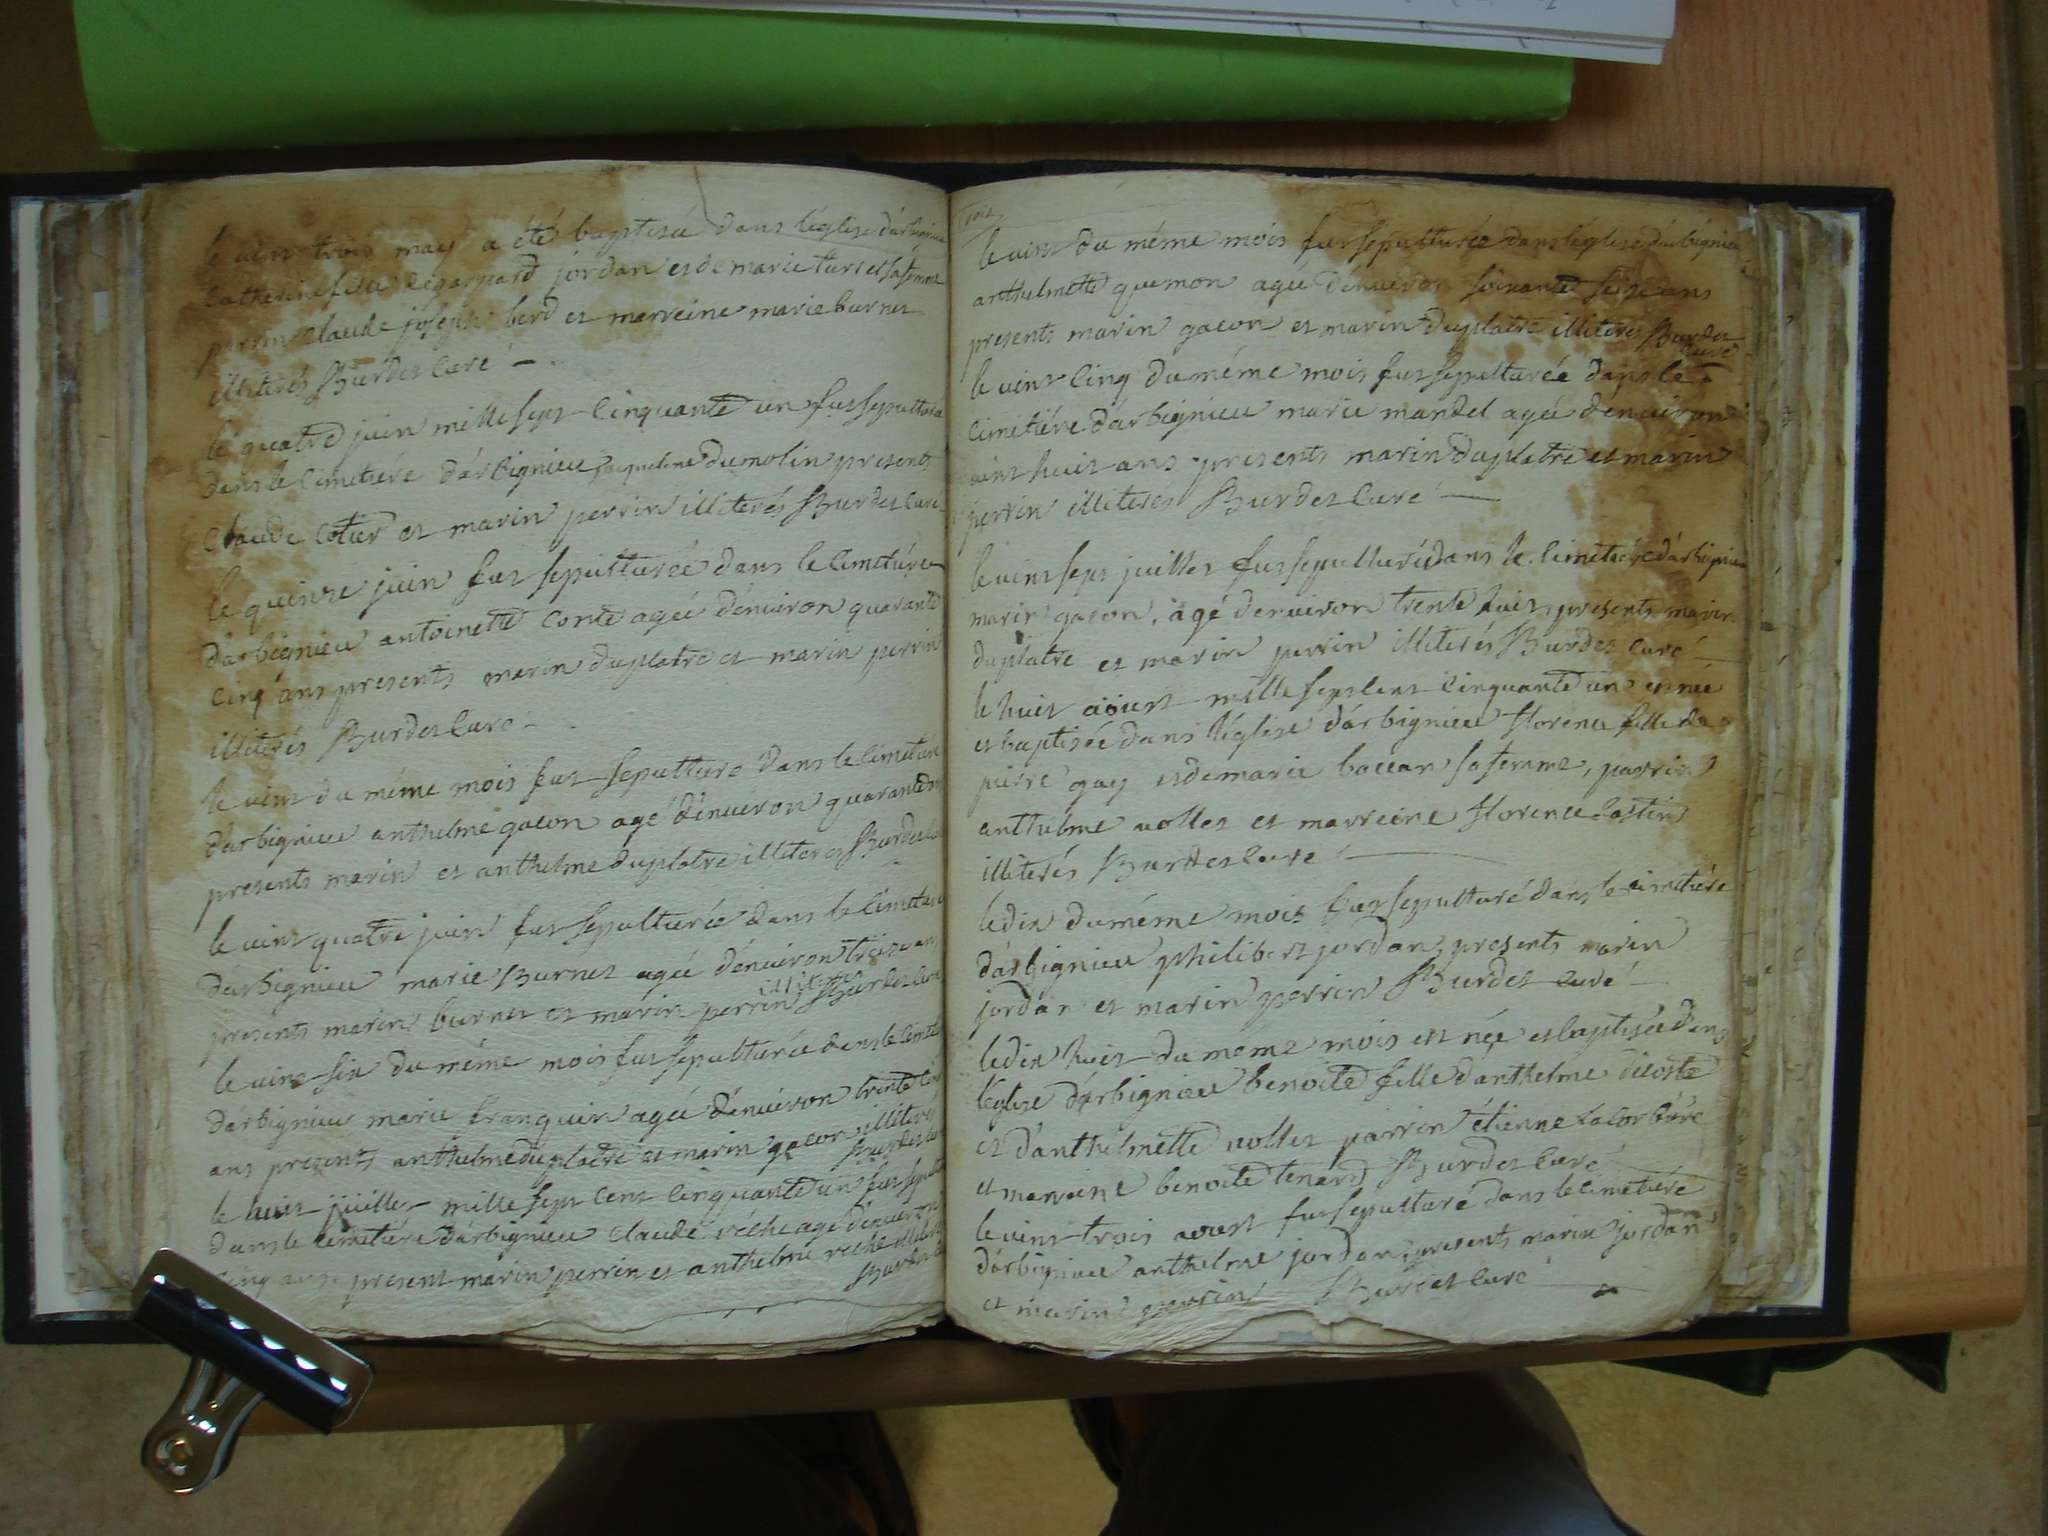 le vint trois may a été baptisée dans léglise dárbignieu
Catherine fille de gaspard jordan et de marie turrel sa femme
parrin claude joseph berd et marreine marie burnet
illiterés Burdet Curé
le quatre juin mille sept cinquante un fut sepulturée
dans le cimetiére dárbignieu jacqueline dumolin presents
Claude Cotier et marin perrin illiterés Burdet Curé
le quinze juin fut sepulturée dans le cimetiére
dárbignieu antoinette Conte agée dénuiron quarante
cinq ans presents marin duplatre et marin perrin
illiterés Burdet Curé
le vint du méme mois fut sepulturé dans le cimetiere
dárbignieu anthelme gacon agé dénuiron quarante
presents marin et anthelme duplatre illiteres Burdet
le vint quatre juin fut sepulturée dans le cimetiere
dárbignieu marie Burnet agée dénuiron treize ans
illiteres
presents marin burnet et márin perrin Burdet Curé
le vint six du méme mois fut sepulturée dans le
dárbignieu marie franquin agée dénuiron trente
ans presents anthelme duplatre et marin gacon illiterés
Burdet
le huit juillet mille sept cent cinquante un fut
dans le cimetiére dárbignieu Claude réche agé dénuiron
cinq ans present marin perrin et anthelme reche
Burdet
le vint du méme mois fut sepulturée dans léglise dárbignieu
anthelmette quemon agée denuiron soixante seize ans
presents marin gacon et marin duplatre illiterés Burdet
Curé
le vint cinq du méme mois fut sepulturée dans le
cimetiére dárbignieu marie mandel agée dénuiron
vint huit ans presents marin duplatre et marin
perrin illiterés Burdet Curé
le vint sept juillet fut sepulturé dans le cimetiére dárbignieu
marin gacon, agé denuiron trente huit, presents marin
duplatre et márin perrin illiterés Burdet Curé
le huit aoust mille sept cent cinquante un est née
et baptisée dans léglise dárbignieu florence fille de
pierre gay et de marie boccon sa femme, parrin
anthelme vollet et marreine florence
illiterés Burdet Curé
le dix du méme mois fut sepulturé dans le cimetiére
dárbignieu philibert jordan, presents marin
jordan et marin perrin Burdet Curé
le dix huit du méme mois est née et baptisée dans
léglise dárbignieu benoite fille danthelme
et danthelmette vollet parrin étienne
et marreine benoite tenard Burdet Curé
le vint trois aoust fut sepulturé dans le cimetiére
dárbignieu anthelme jordan presents marin jordan
et marin perrin Burdet Curé